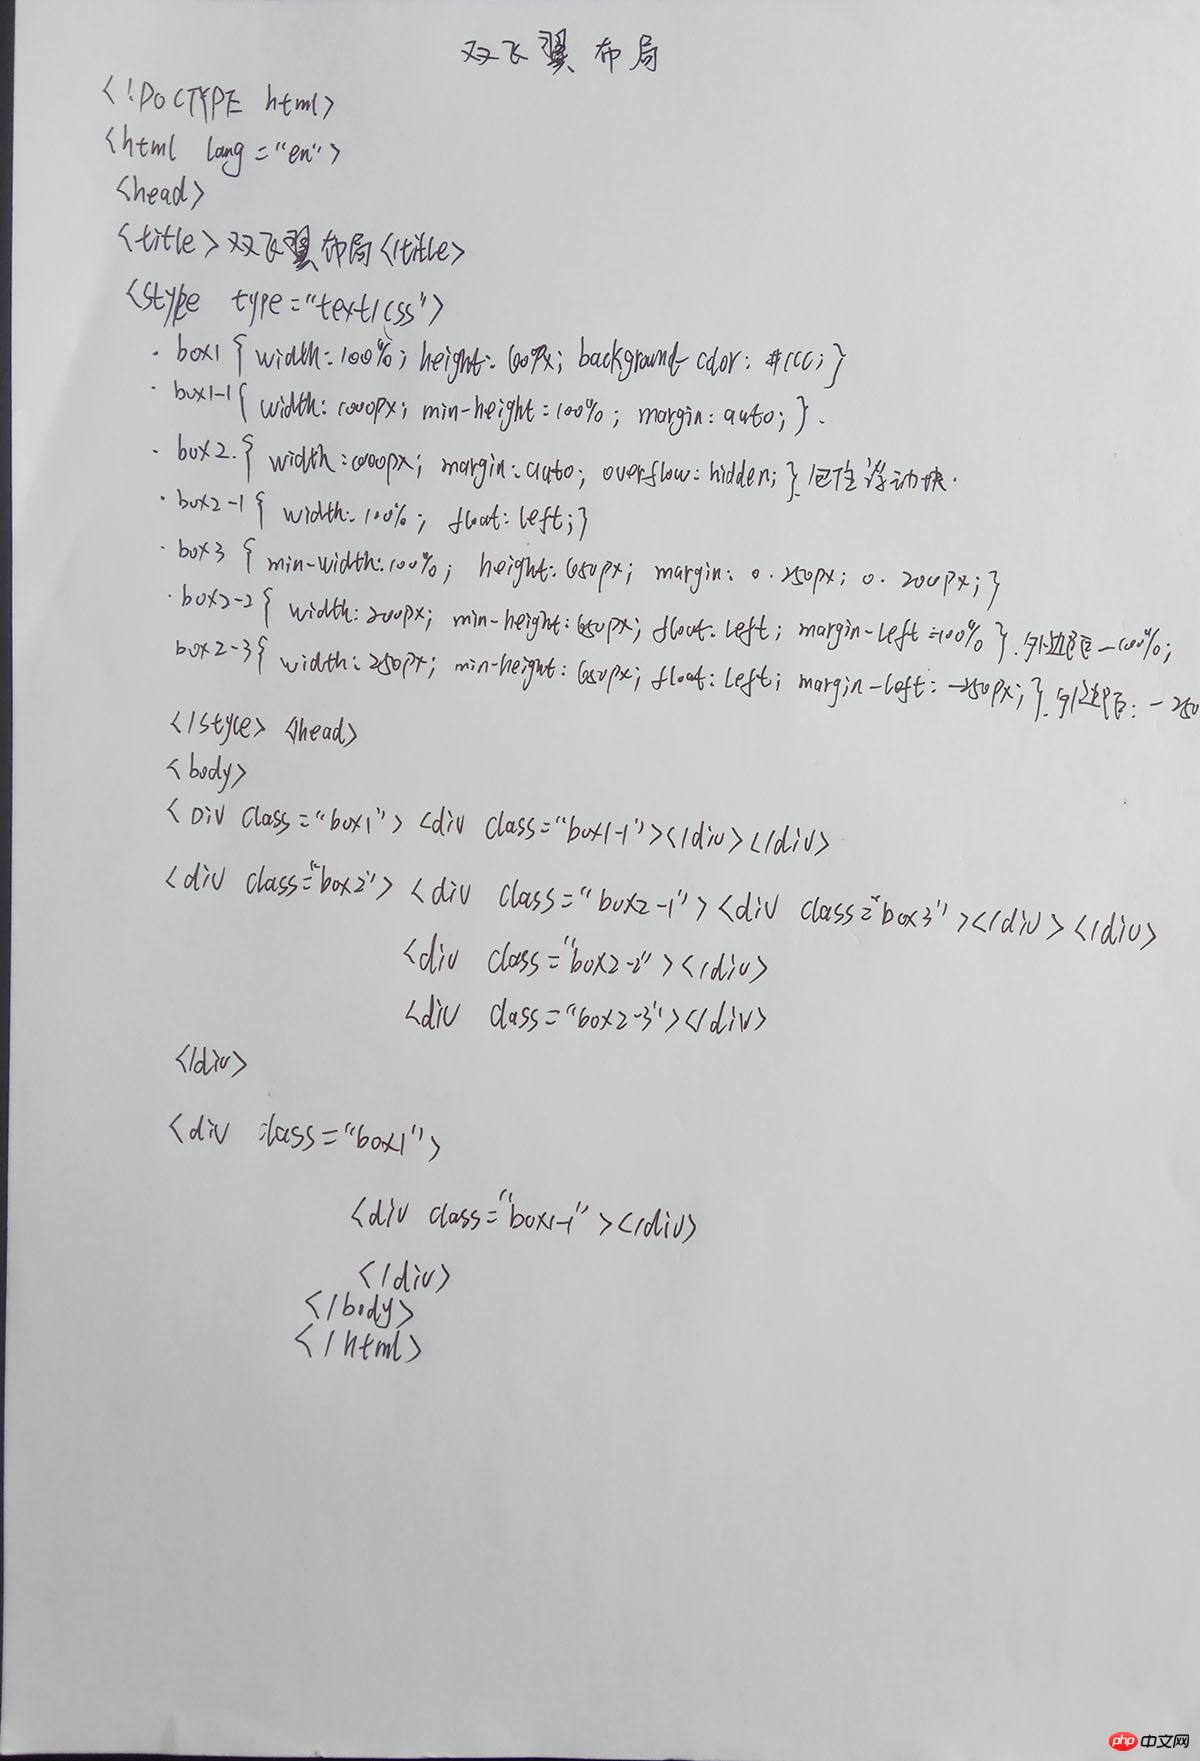 双飞翼布局
<!DOCTYPE html>
<html lang="en">
<head>
<title>双飞翼布局</title>
<style type="text/css">
.box1{width:100%;height:60px;background-color:#ccc;}
.box1-1{width:1000px;min-height:100%;margin:auto;}.
.box2.{width:1000px;margin:auto;overflow:hidden;}.包住浮动块.
.box2-1{width:100%;float:left;}
.box3{min-width:100%;height:650px;margin:0.250px;0.200px;}
.box2-2{width:200px;min-height:650px;float:left;margin-left=100%}.外边距-100%;
box2-3{width:250px;min-height:650px;float:left;margin-left:-250px;}.外边距:-250
</style></head>
<body>
<Div class="box1"><div class="box1-1"></div></div>
<div class="box2"><div class="box2-1"><div class="box3"></div></div>
<div class="box2-2"></div>
<div class="box2-3"></div>
</div>
<div class="box1">
<div class="box1-1"></div>
</div>
</body>
</html>
php中文网